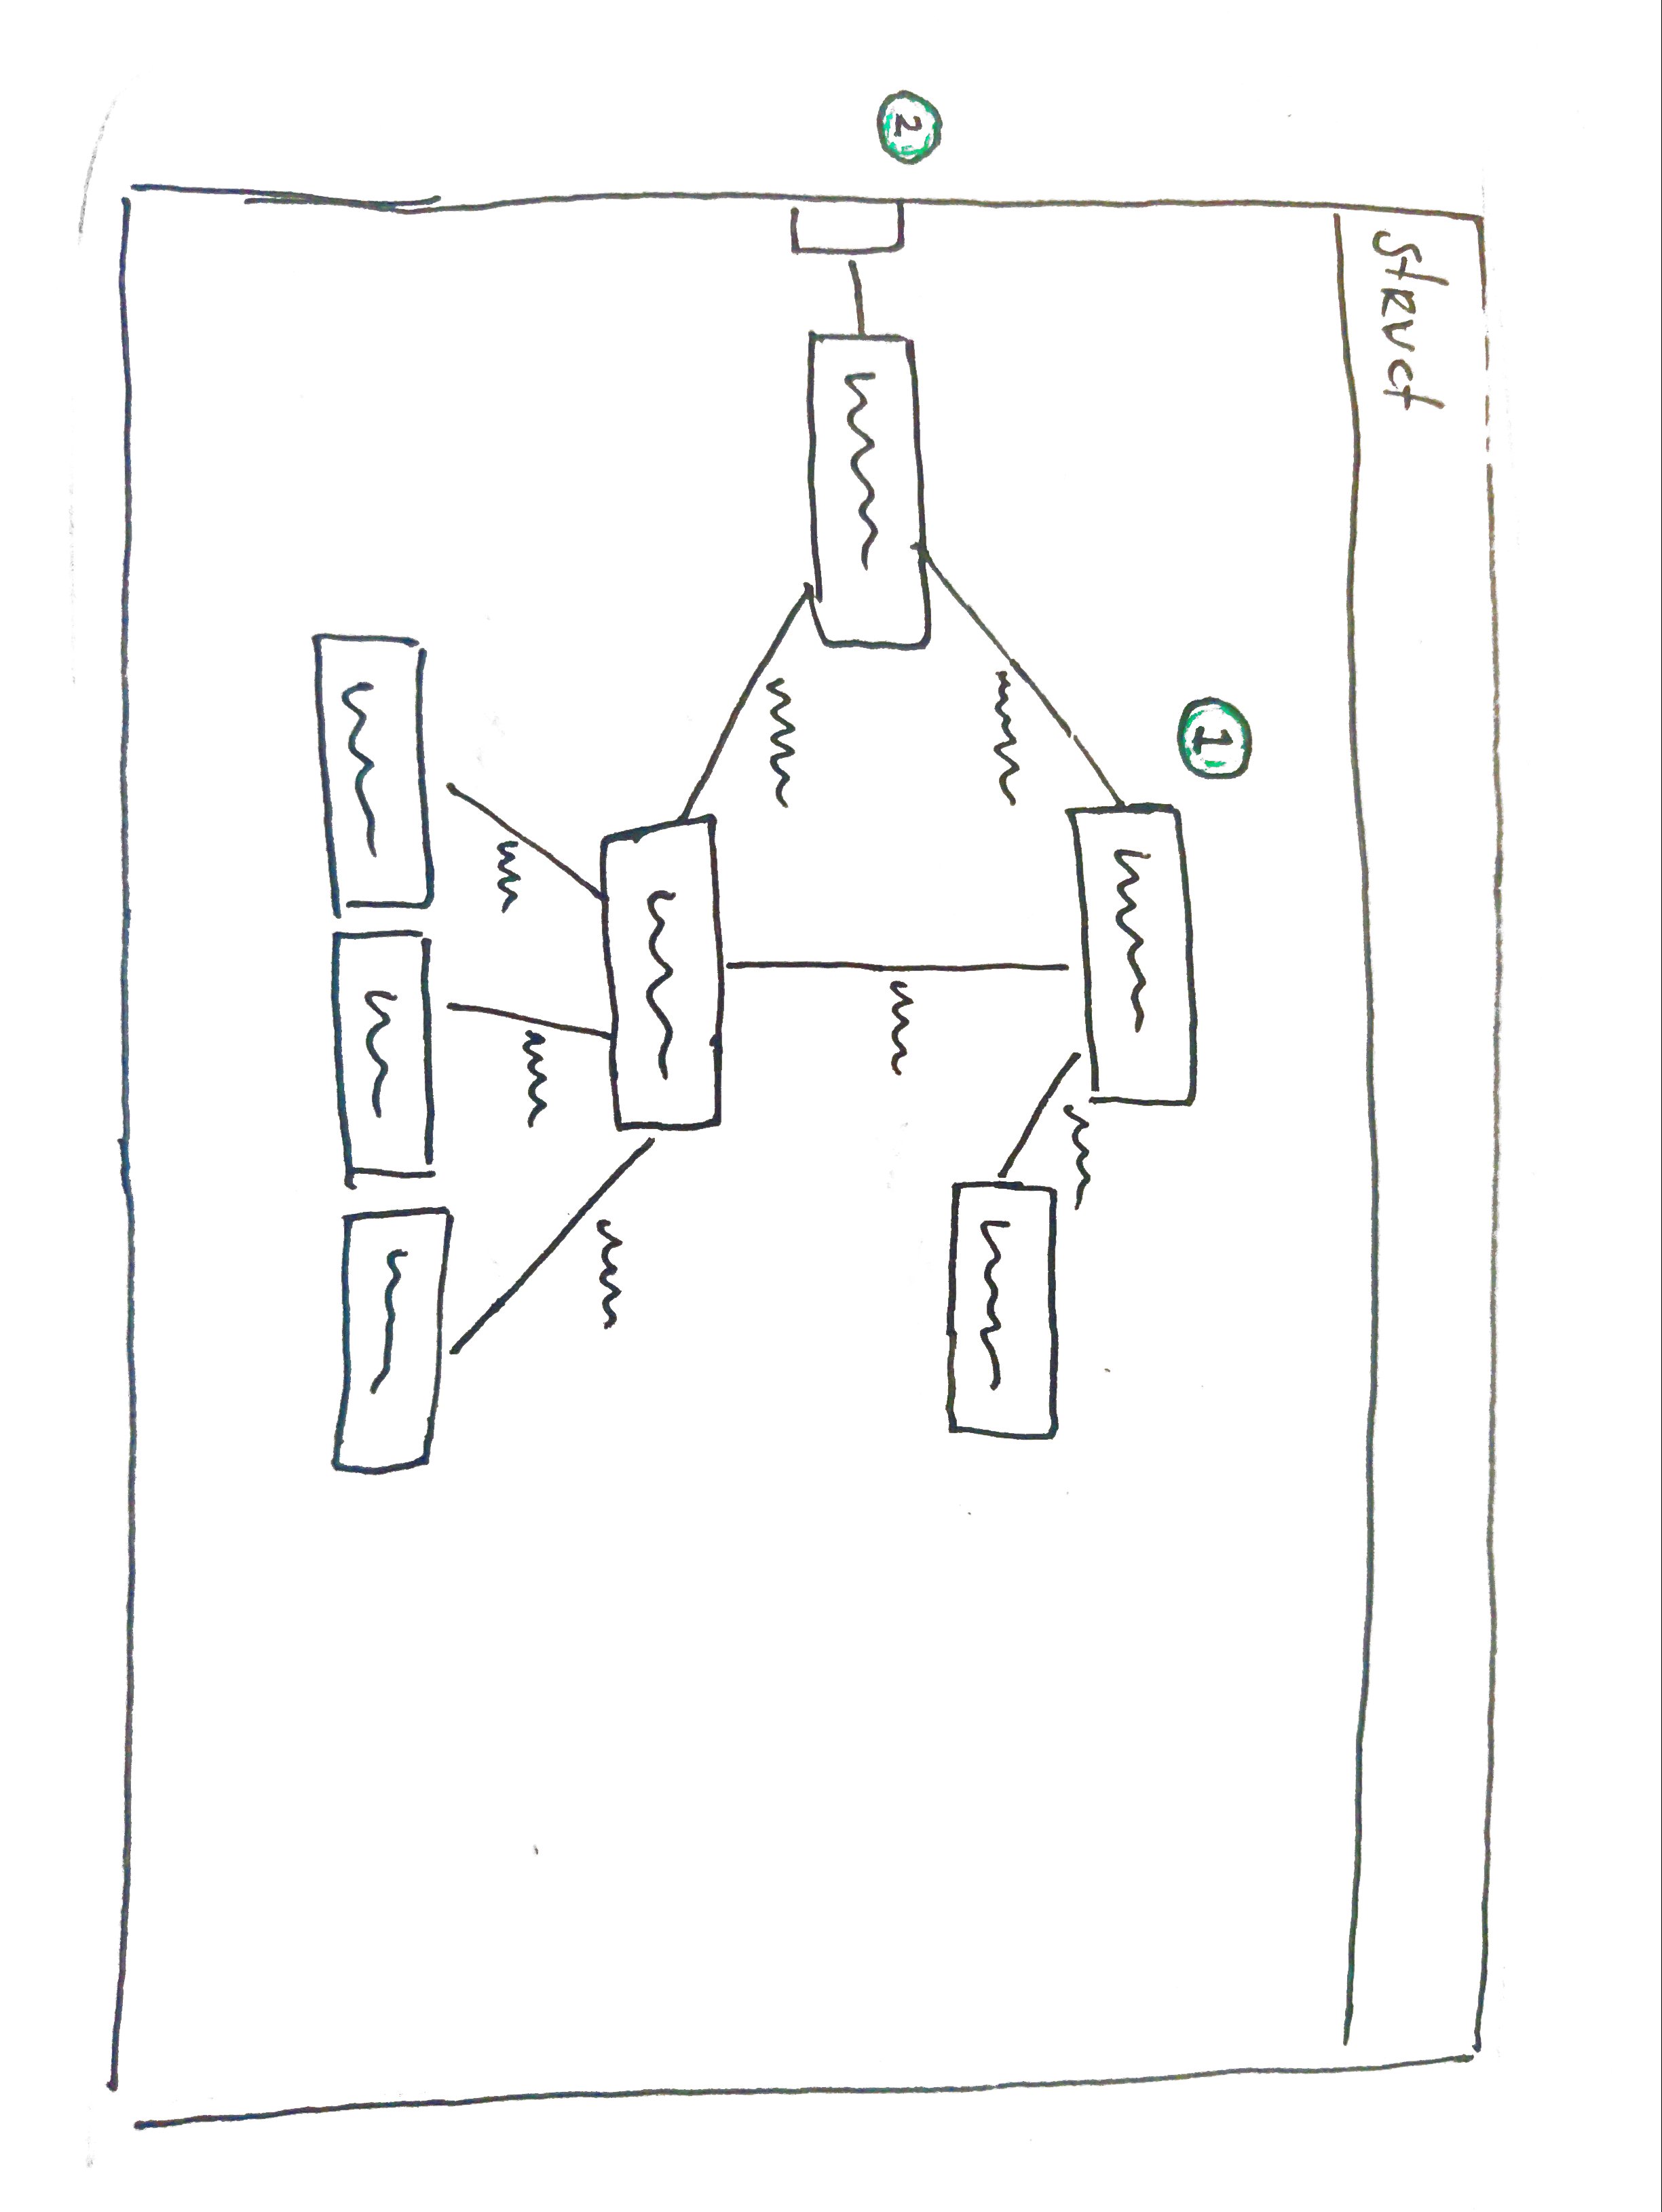 struct
1
2